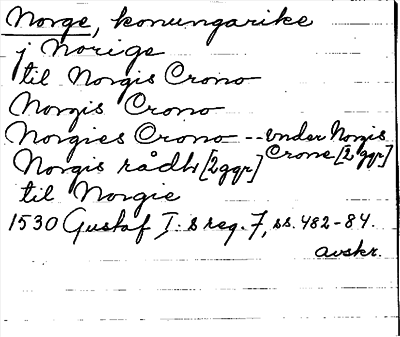 Norge, konungarike
j Norige
til Norgis Crono
Norgis Crono
Norgies Crono -- vnder Norgis Crone [2 ggr]
Norgis rådh [2 ggr]
til Norgie
1530 Gustaf I:s reg. 7, ss. 482-84.
avskr.